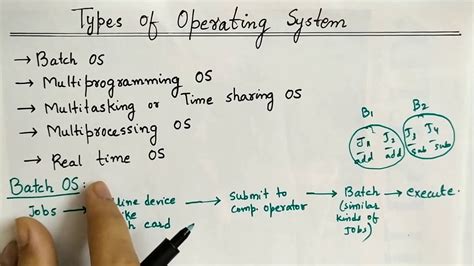 Types of Operating System
→ Batch OS
→ Multiprogramming OS
→ Multitasking or Time sharing OS
→ Multiprocessing OS
→ Real time OS
B1 B2
J1 J2 J3 J4
add add sub sub
Batch OS:
Jobs → line device → submit to → Batch → execute.
like comp. operator (similar
card kinds of
Jobs)